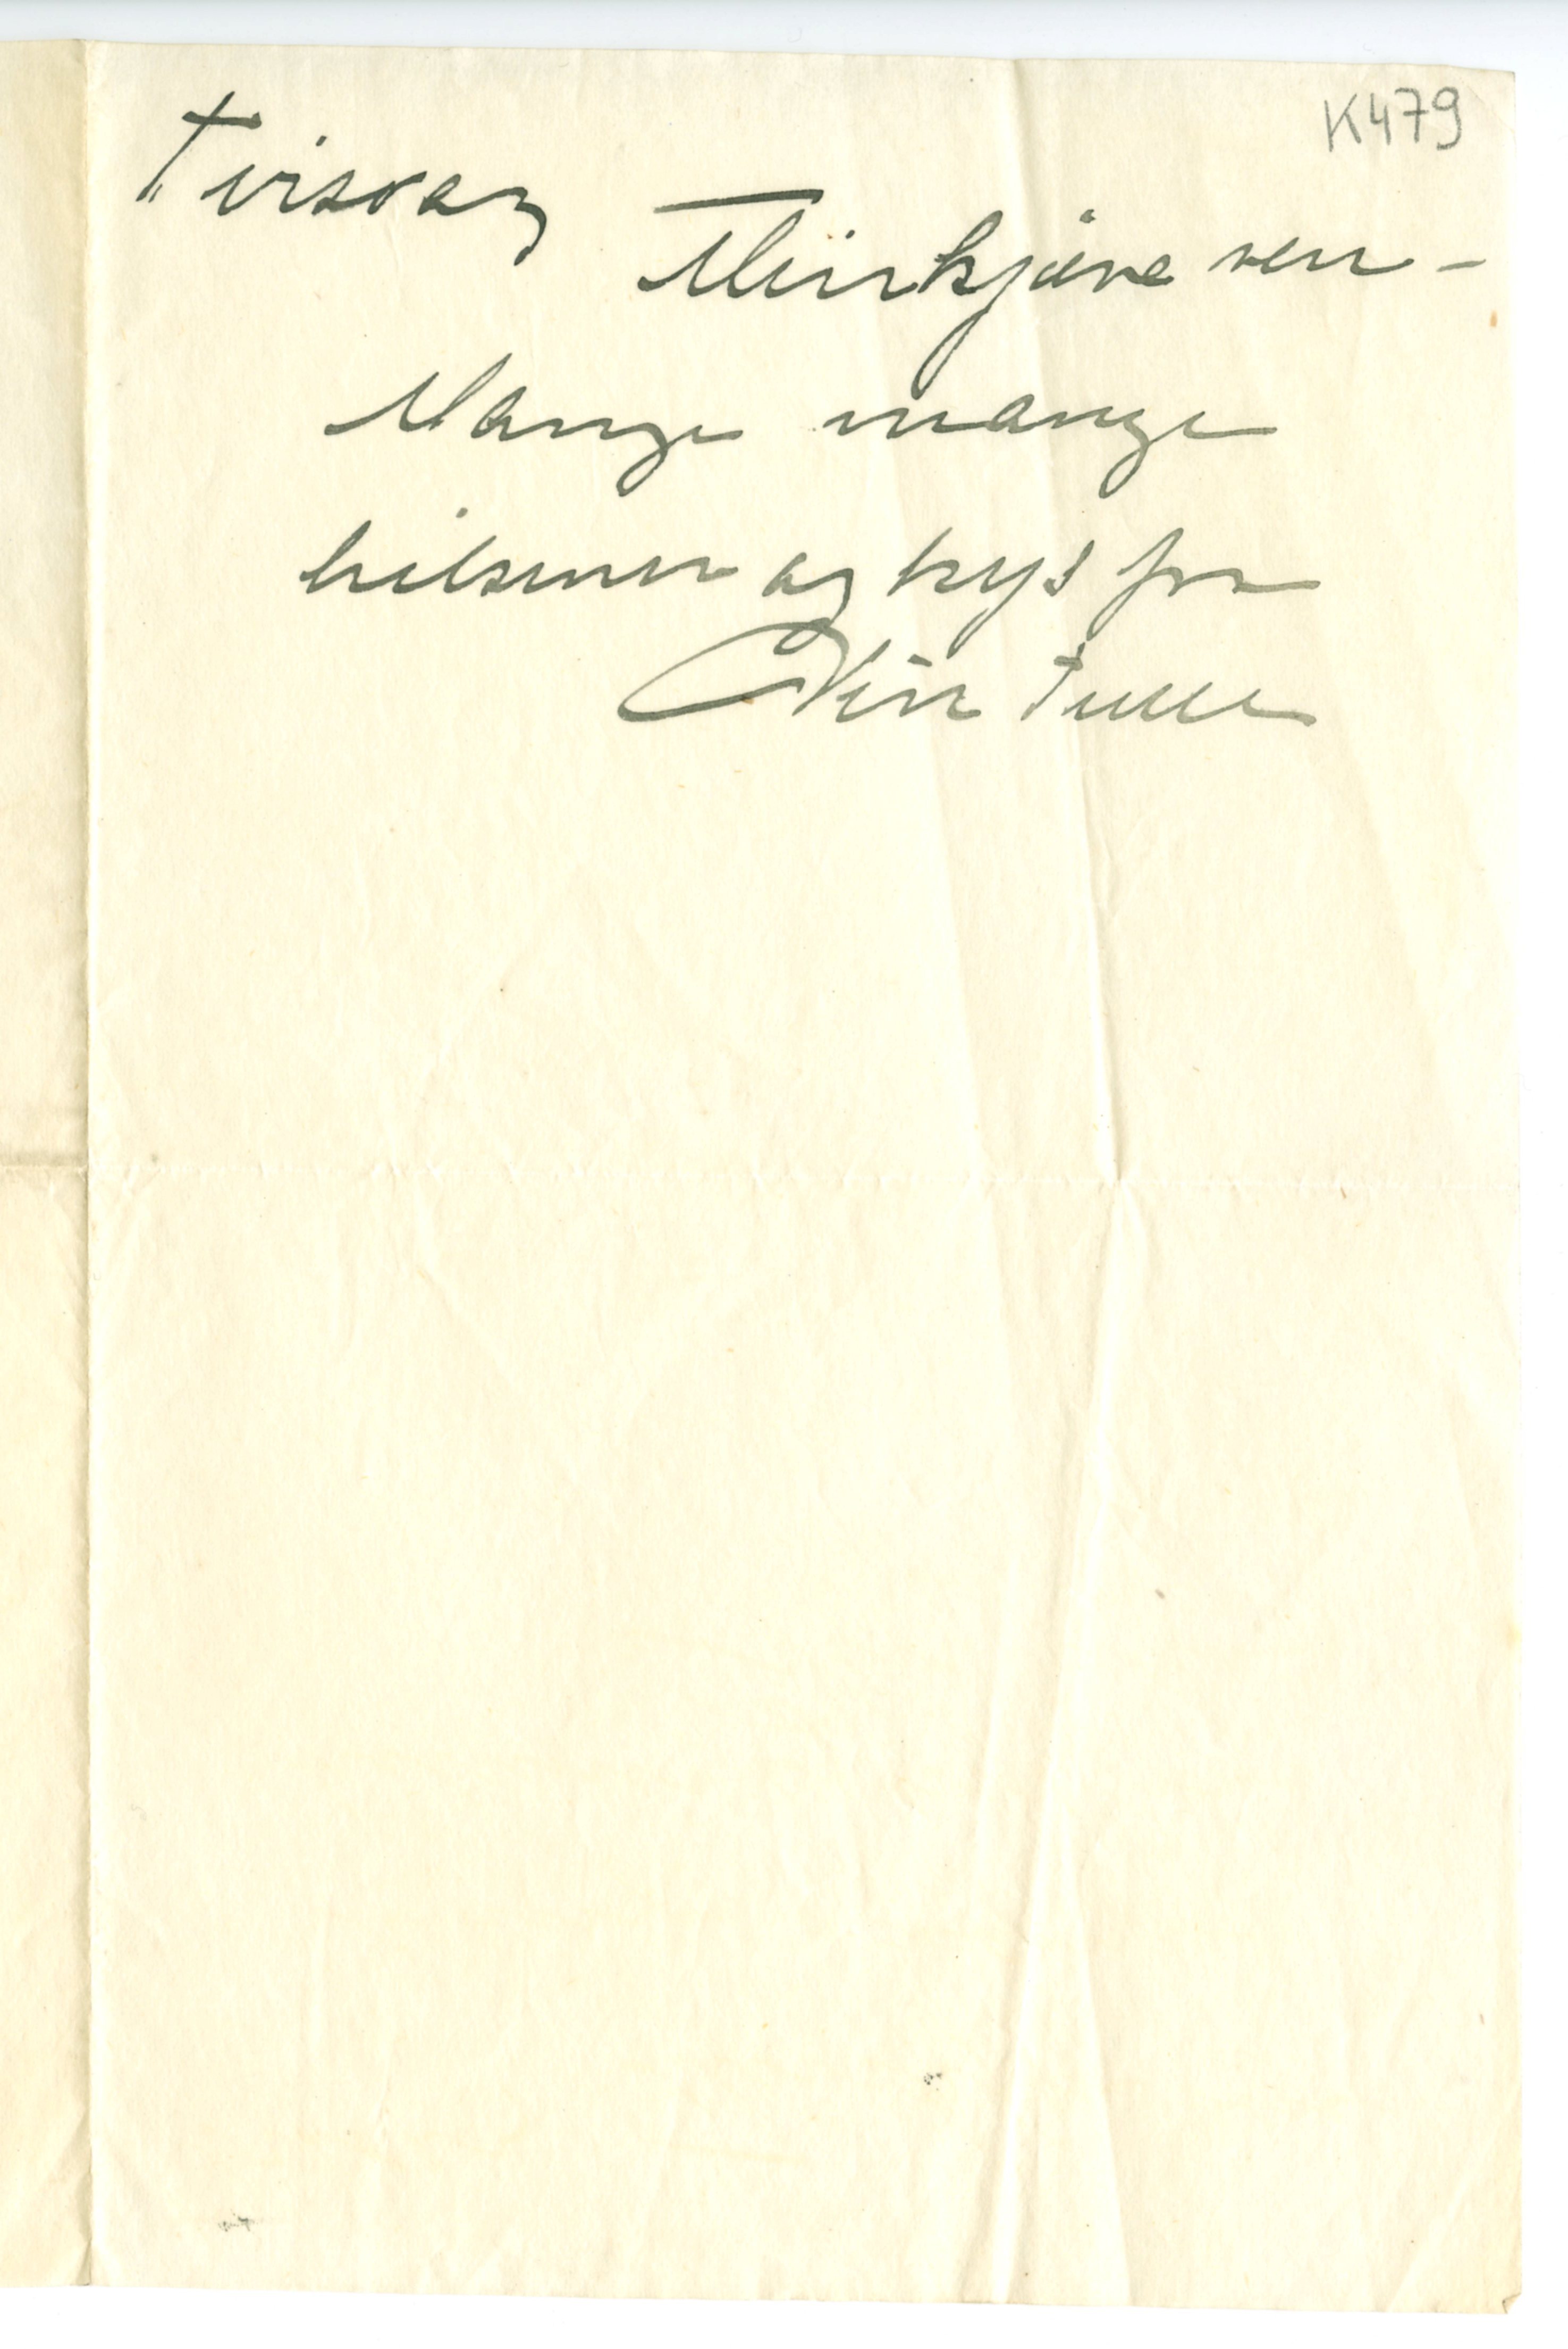 K479
Tirsdag
Min kjære ven –
Mange mange
hilsener og kys fra
Din Tulla